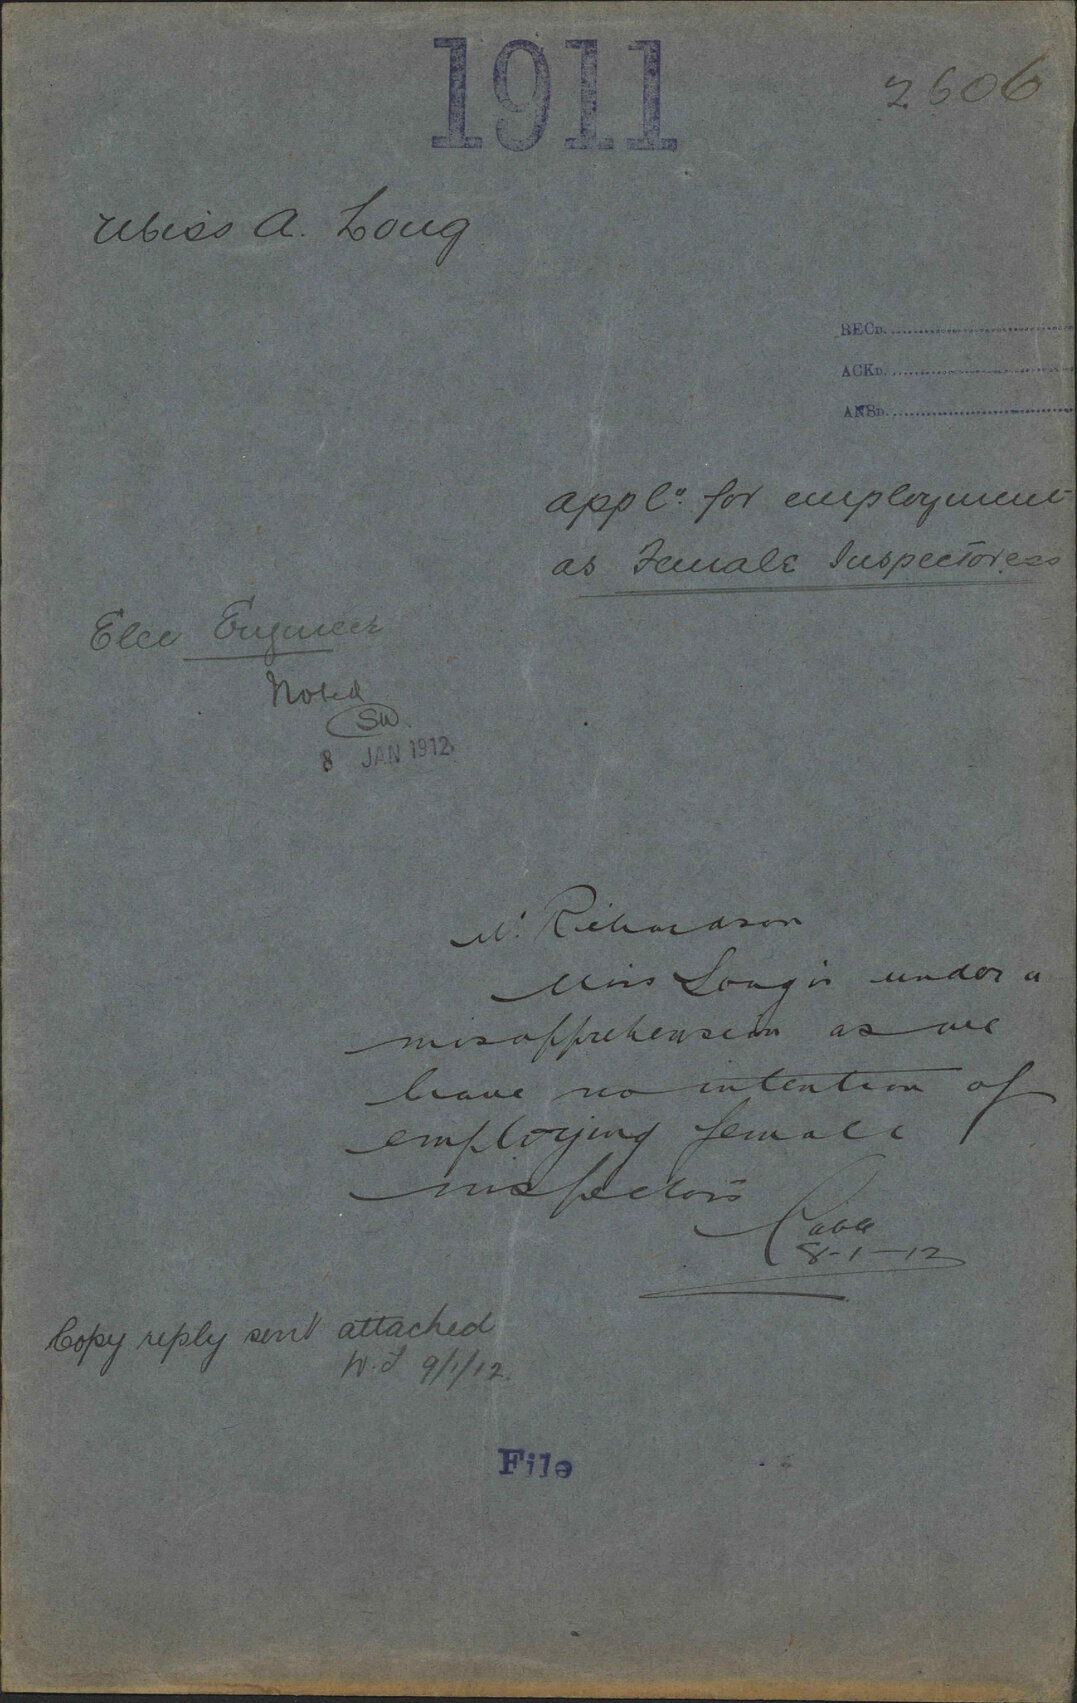 1911
2606
Miss A. Long
RECD.
ACKD.
ANSD.
appln. for employment
as Female Inspectoress
Elec Engineer
Noted
SW.
8 JAN 1912
Mr. Richardson
Miss Long is under a
misapprehension as we
have no intention of
employing female
inspectors
8-1-12
Copy reply sent attached
9/1/12.
File